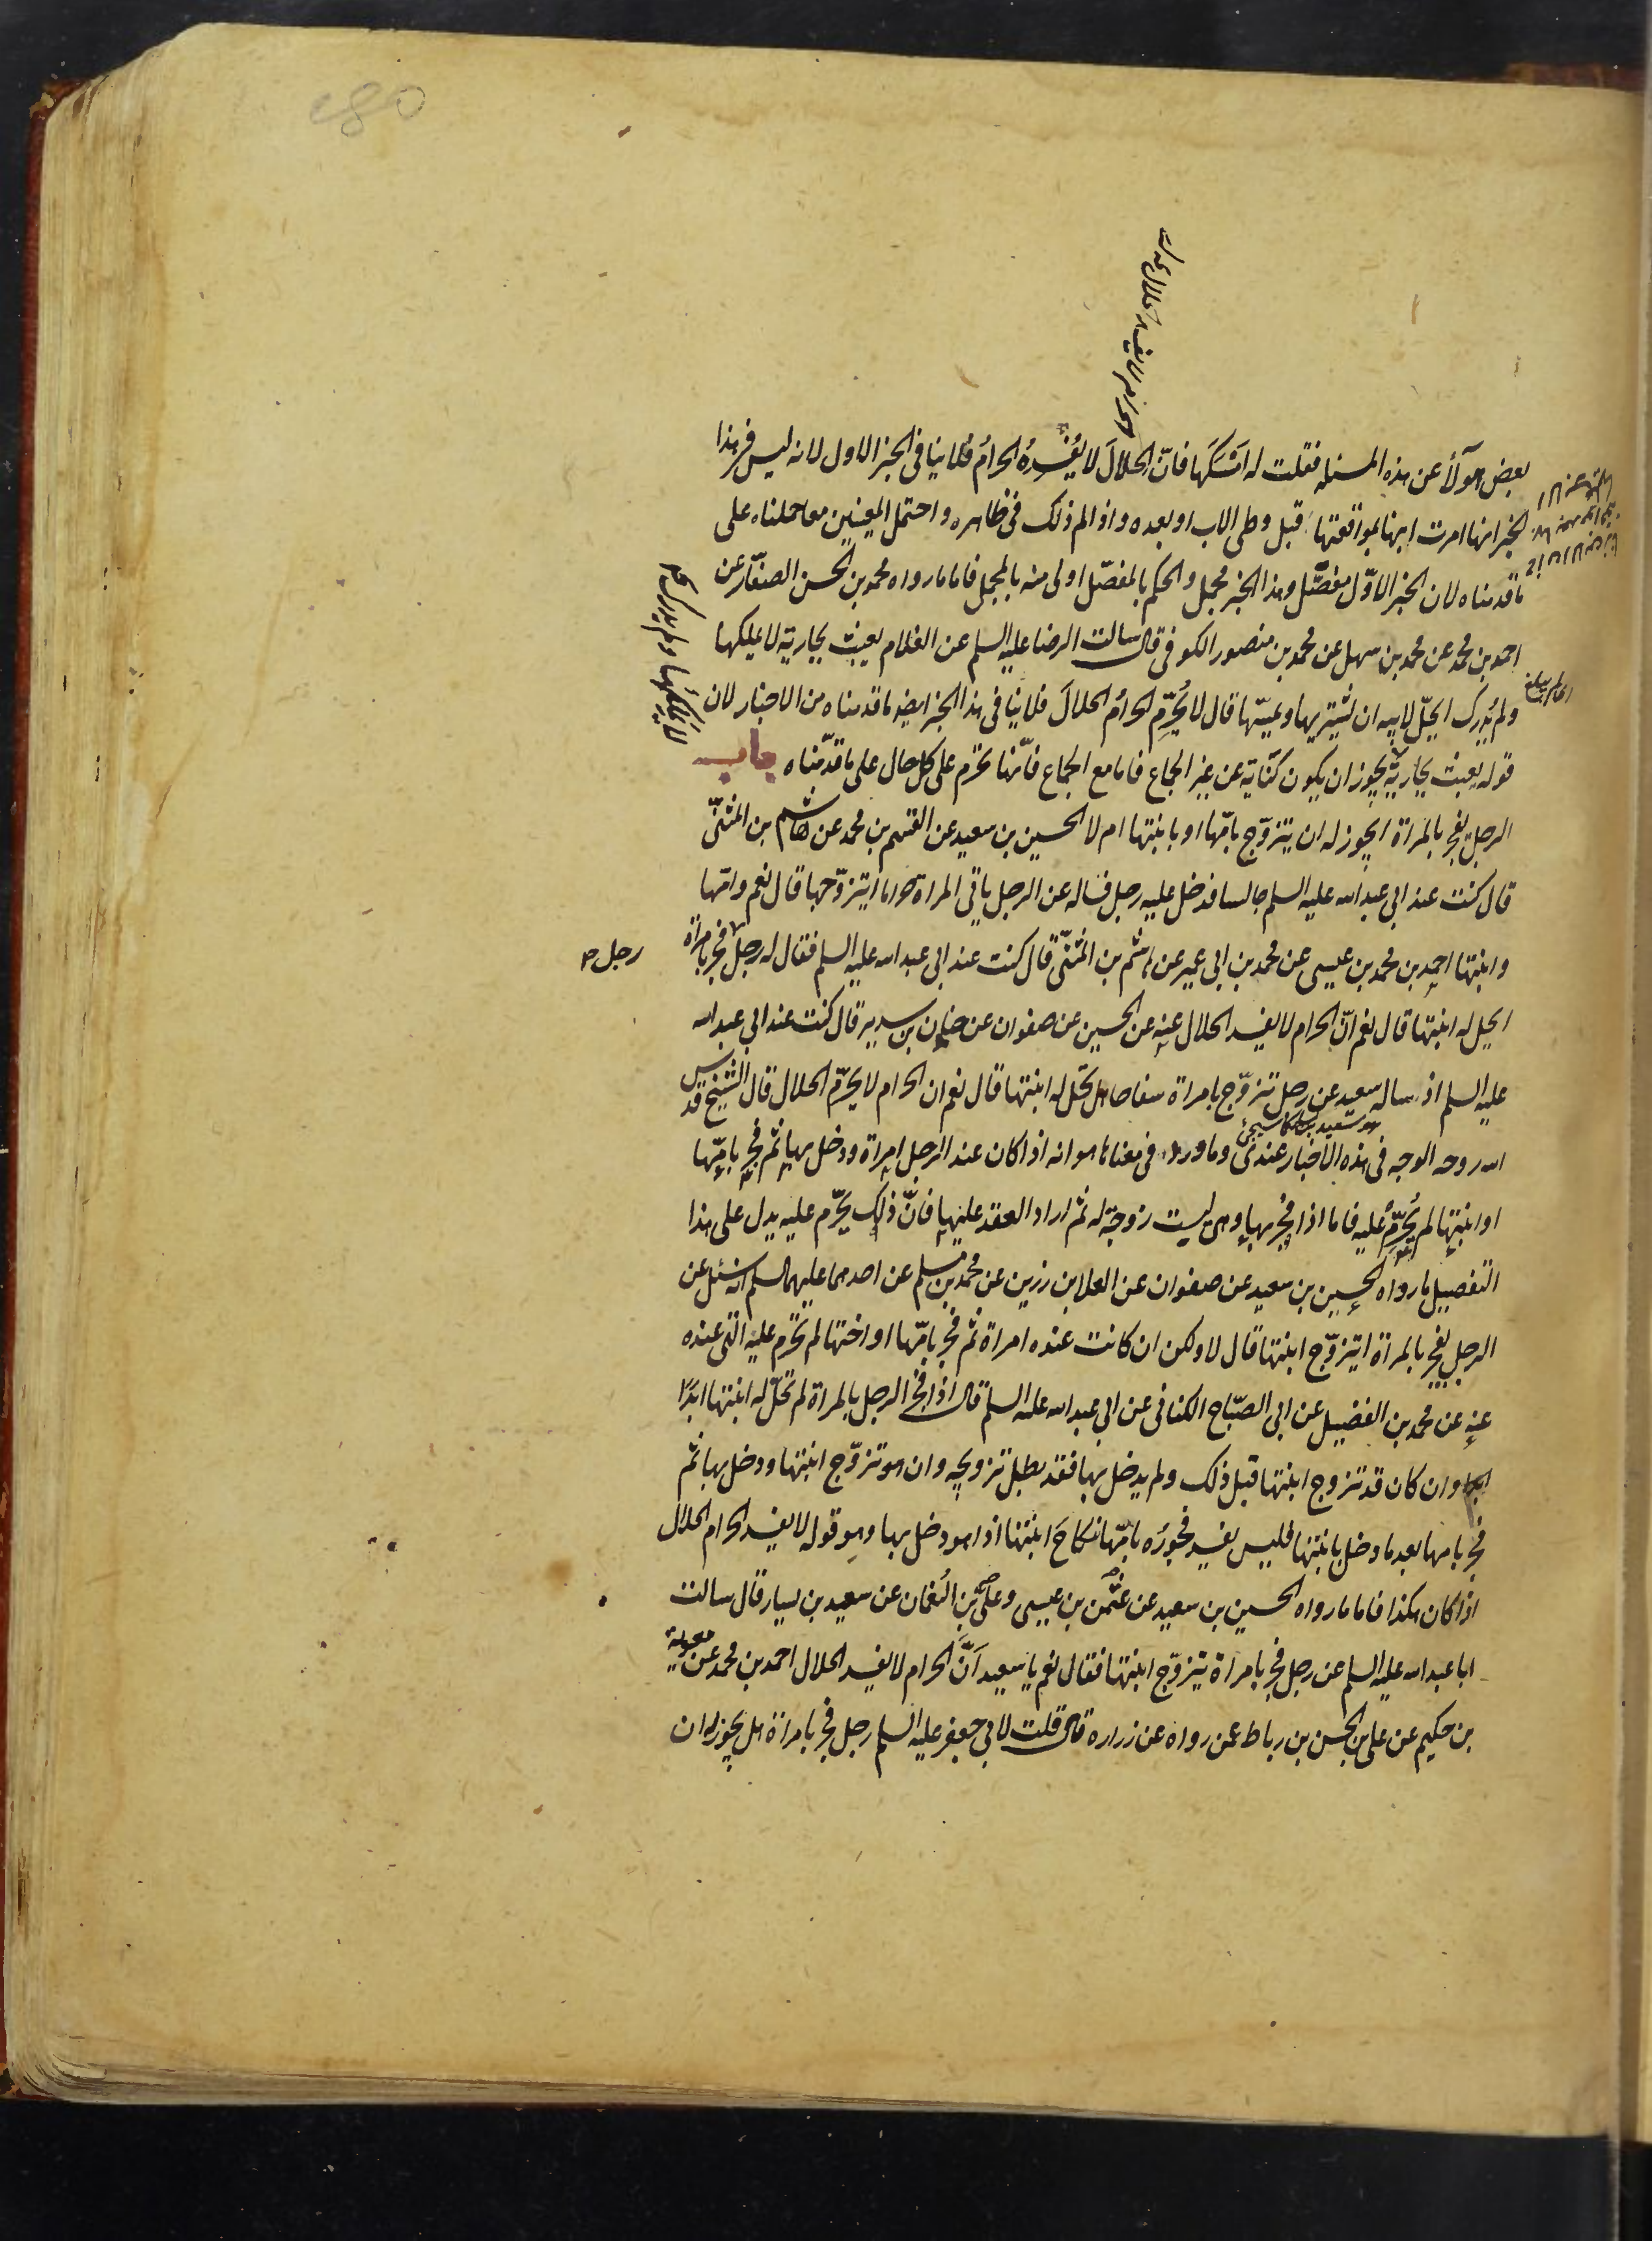 بعض هولآء عن هذه المسئله فقلت له امسكها فانّ الحلال لا يُفسِدُه الحرامُ فلا ينافى الخبر الاول لانه ليس فى هذا
الخبر انها امرت ابنها بمواقعتها قبل وطى الاب او بعده واذا لم ذلك فى ظاهره واحتمل المعنيين معا حملناه على
ما قدمناه لان الخبر الاوّل مفصّل وهذا الخبر مجمل والحكم بالمفصّل اولى منه بالمجمل فاما ما رواه محمد بن الحسن الصفّار عن
احمد بن محمد عن محمد بن سهل عن محمد بن منصور الكوفى قال سالت الرضا عليه السلم عن الغلام يعبث بجارية لا يملكها
ولم يُدرك ايحلّ لابيه ان يشتريها ويمسّها قال لا يُحرِّم الحرامُ الحلالَ فلا ينافى هذا الخبر ايضا ما قدمناه من الاخبار لان
قوله يعبث بجارية يجوز ان يكون كناية عن غير الجماع فاما مع الجماع فانّها تحرم على كل حال على ما قدّمناه باب
الرجل يفجر بالمراة ايجوز له ان يتزوّج بامّها او بابنتها ام لا الحسين بن سعيد عن القسم بن محمد عن هاشم بن المثنّى
قال كنت عند ابى عبد الله عليه السلم جالسا فدخل عليه رجل فساله عن الرجل ياتى المراة حراما ايتزوّجها قال نعم وامّها
وابنتها احمد بن محمد بن عيسى عن محمد بن ابى عمير عن هاشم بن المثنّى قال كنت عند ابى عبد الله عليه السلم فقال له رجل فجر بامراة
رجل
ايحل له ابنتها قال نعم انّ الحرام لا يفسد الحلال عنه عن الحسين عن صفوان عن حنان بن سدير قال كنت عند ابى عبد الله
عليه السلم اذ ساله سعيد عن رجل تزوّج بامراة سفاحا هل تحلّ له ابنتها قال نعم ان الحرام لا يحرّم الحلال قال الشيخ قدس
الله روحه الوجه فى هذه الاخبار عندى وما ورد فى معناها هو انه اذا كان عند الرجل امراة ودخل بها ثم فجر بامّها
او ابنتها لم يُحرّم عليه فاما اذا فجر بها وهى ليست زوجة له ثم اراد العقد عليها فانّ ذلك يحرّم عليه يدل على هذا
التفصيل ما رواه الحسين بن سعيد عن صفوان عن العلا بن رزين عن محمد بن مسلم عن احدهما عليهما السلم انه سئل عن
الرجل يفجر بالمراة ايتزوّج ابنتها قال لا ولكن ان كانت عنده امراة ثم فجر بامّها او اختها لم تحرم عليه التى عنده
عنه عن محمد بن الفضيل عن ابى الصبّاح الكنانى عن ابى عبد الله عليه السلم قال اذا فجر الرجل بالمراة لم تحلّ له ابنتها ابدًا
وان كان قد تزوج ابنتها قبل ذلك ولم يدخل بها فقد بطل تزويجه وان هو تزوّج ابنتها ودخل بها ثم
فجر بامها بعد ما دخل بابنتها فليس يفسد فجورُه بامّها نكاحَ ابنتها اذا هو دخل بها وهو قوله لا يفسد الحرام الحلال
اذا كان هكذا فاما ما رواه الحسين بن سعيد عن عثمن بن عيسى وعلى بن النُعمان عن سعيد بن يسار قال سالت
ابا عبد الله عليه السلم عن رجل فجر بامراة يتزوّج ابنتها فقال نعم يا سعيد انّ الحرام لا يفسد الحلال احمد بن محمد عن معوية
بن حكيم عن على بن الحسن بن رباط عمن رواه عن زراره قال قلت لابى جعفر عليه السلم رجل فجر بامراة هل يجوز له ان